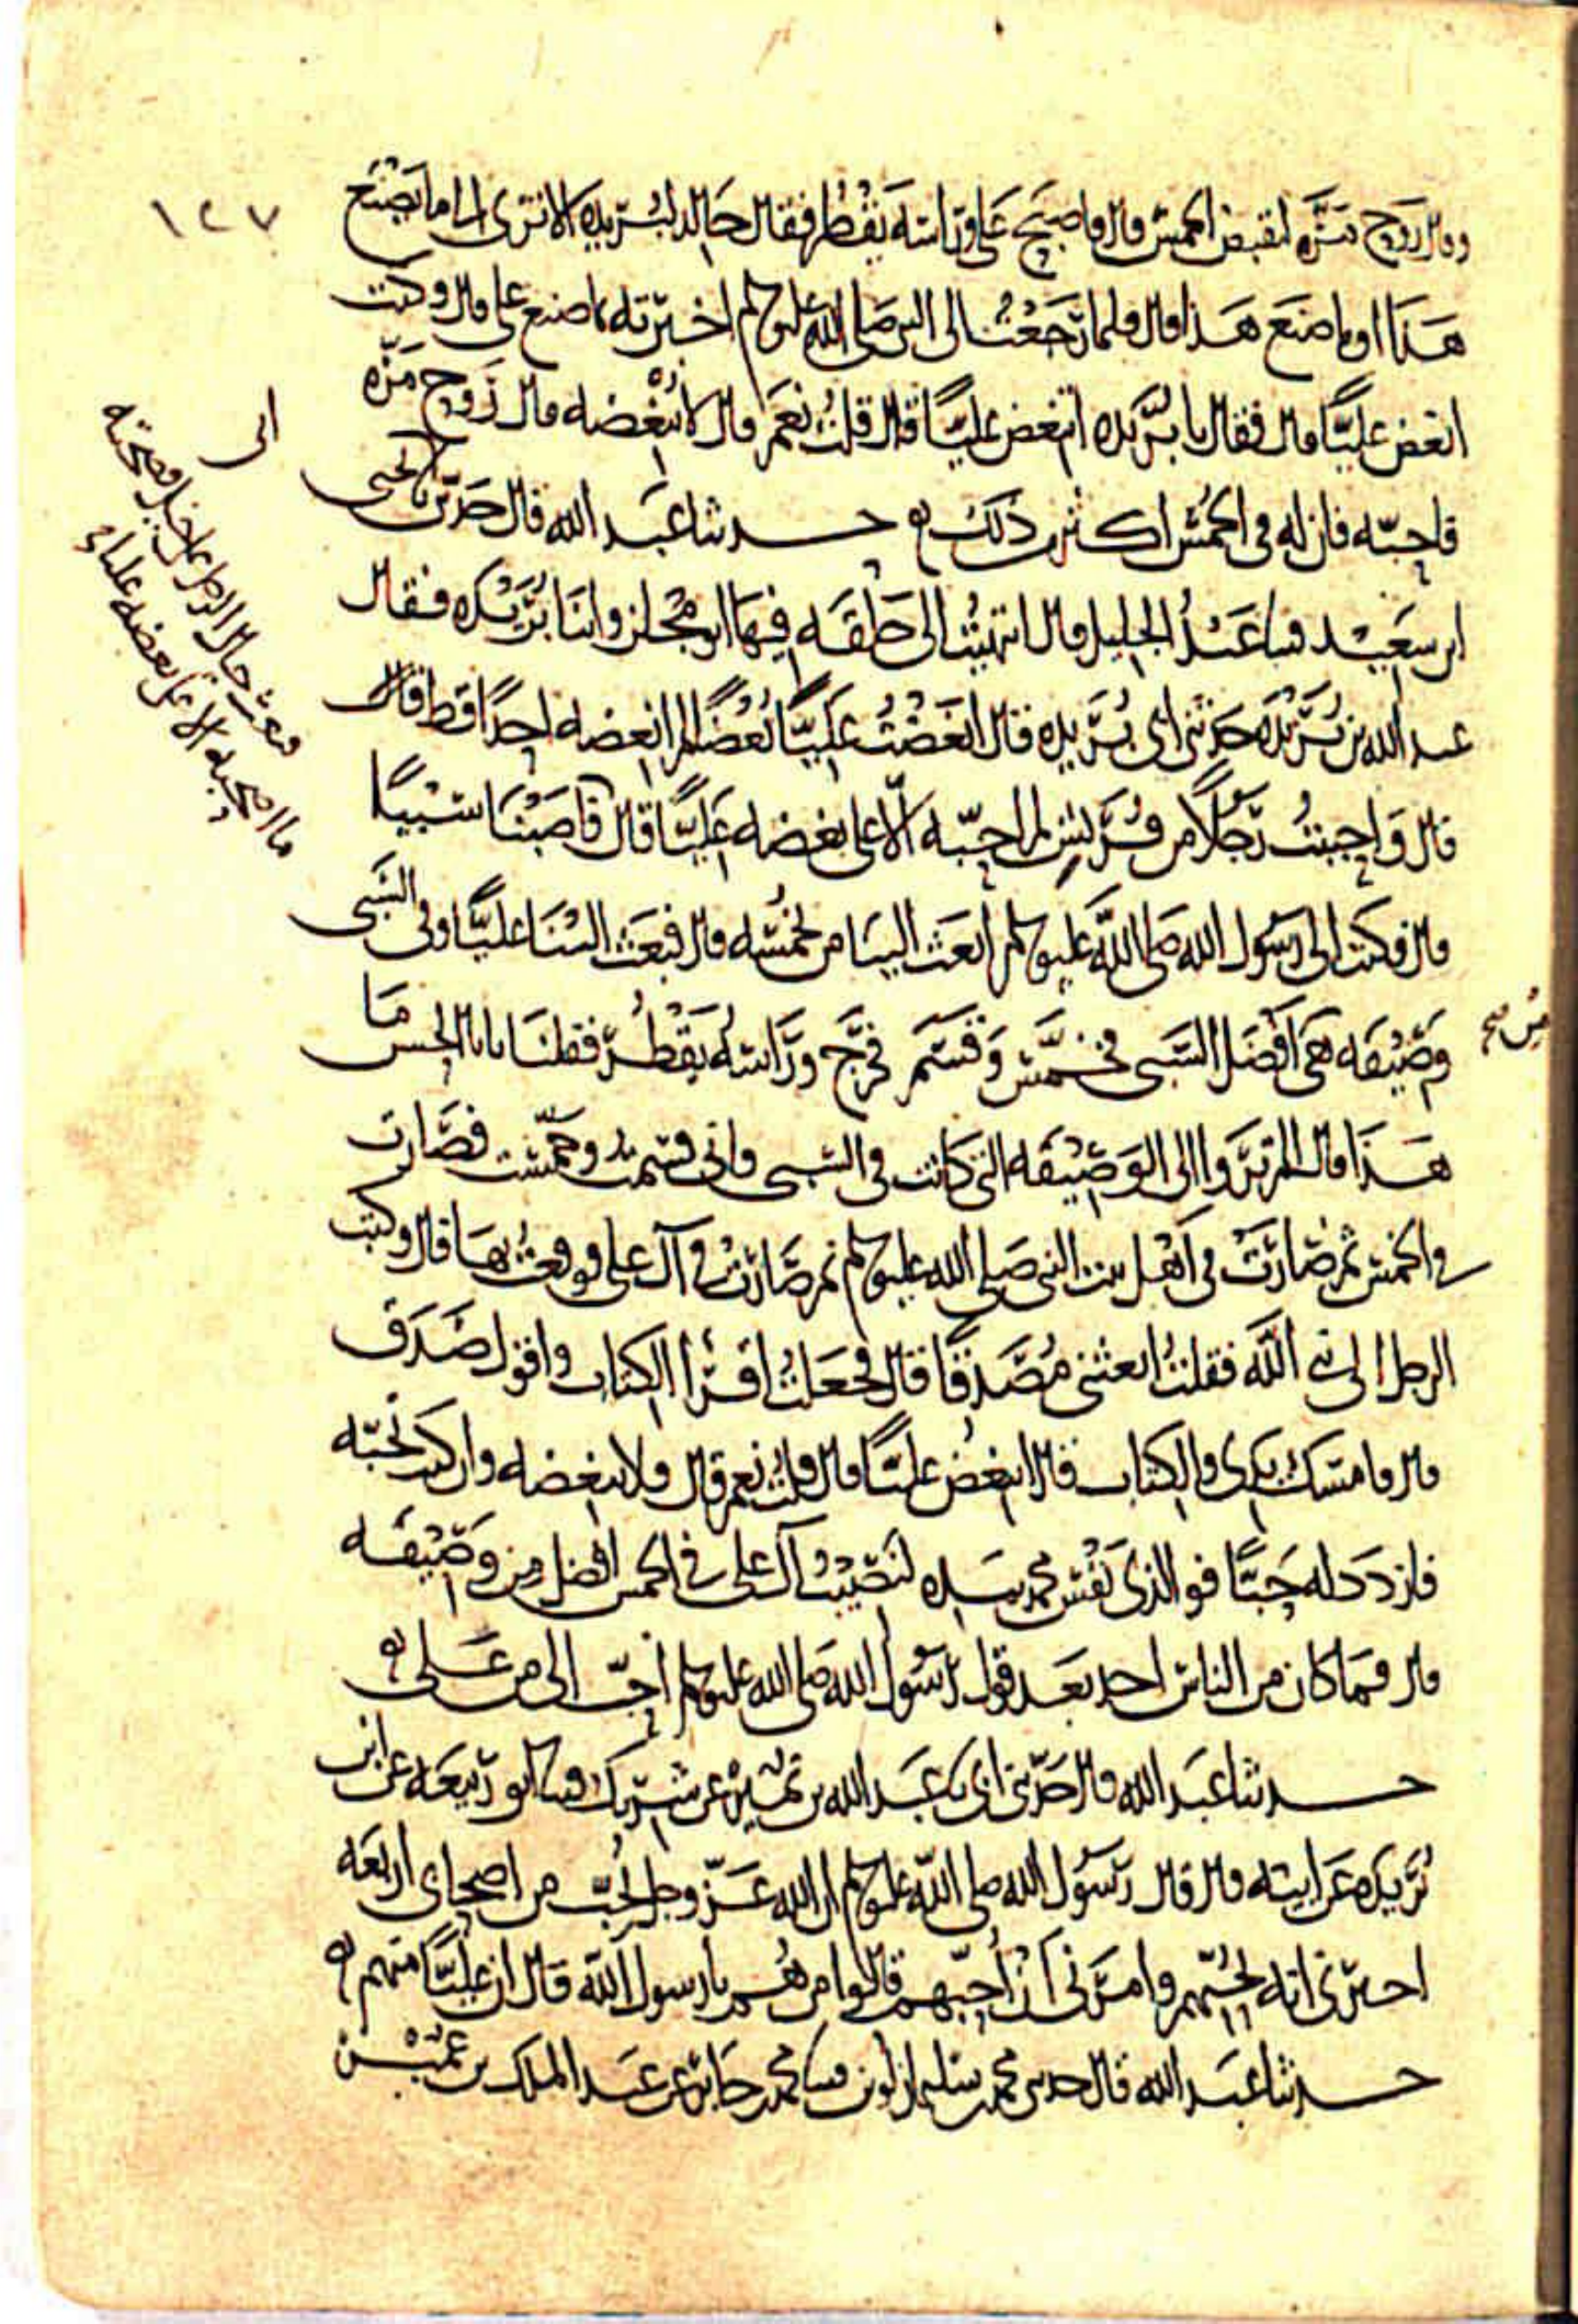 ١٢٧
وقال روح مرة ليقبض الخمس قال فاصبح علي وراسه يقطر فقال خالد لبريدة الا ترى الى ما يصنع
هذا او ما صنع هذا قال فلما رجعت الى النبي صلى الله عليه وسلم اخبرته ما صنع علي قال وكنت
ابغض عليًّا قال فقال يا بُريدة اتبغض عليًّا قال قلتُ نعم قال لا تبغضه قال رَوح مَرَّه
فاحبّه فان له في الخمس اكثر من ذلك حدثنا عبد الله قال حدثني ابي نا يحيى
ابن سعيد فثنا عبدُ الجليل قال انتهيتُ الى حلقه فيها ابو مجلز وابنا بُرَيْده فقال
عبد الله بن بُرَيْدَه حدثني ابي بُرَيده قال ابغضتُ عليًّا بُغضًا لم ابغضه احدًا قط قال
قال وَاحببتُ رَجلاً من قُرَيش لم احبّه الّا على بغضه عليًّا قال فاصبنا سَبْيًا
قال فكتب الى رسُول الله صلى الله عليه وسلم ابعث الينا من يخمّسه قال فبعث الينا عليًّا وفي السَّبي
وصيفه هي افضل السَّبي فخمّس وَقسَم فخرَج ورَاسُه يقطُر فقلنا يابا الحسن ما
هذا قال الم تَرَوا الى الوصيفه التي كانت في السَّبي فاني قسمتُ وخمّست فصَارت
في الخمس ثم صَارَت في اَهل بيت النبي صَلى الله عليه وسلم ثم صَارَت في آل علي فوقعتُ بهَا قال وكتب
الرجل الى نبي الله فقلتُ ابعثني مُصَدِّقًا قال فجعَلتُ اقرأ الكتاب واقول صَدَق
قال فامسَك يدي والكتاب قال اتبغض عليًّا قال قلتُ نعم قال فلا تبغضه وان كنتَ تحبّه
فازدد له حبًّا فوالذي نفس محمد بيده لنَصيبُ آل علي في الخمس افضل من وصيفه
قال فما كان من الناس احد بعد قول رسول الله صلى الله عليه وسلم احبّ اليّ من عَلي
حدثنا عبد الله قال حدّثني ابي نا عبد الله بن نُمَيْر عن شريك فثنا ابو ربيعه عن ابن
بُرَيده عن ابيه قال قال رسُول الله صلى الله عليه وسلم ان الله عَزّ وجل يُحبّ من اصحابي اربعه
اخبرني انه يُحبّهم وامرني اَنْ اُحبّهم قالوا من هُم يا رسول الله قال ان عليًّا منهم
حدثنا عبد الله قال حدثني محمد بن سليمان لوين فثنا محمد بن جابر عن عبد الملك بن عُمَيْر
ابي
فبعث ذاك الرجل على خيل فصحبته
ما اصحبه الا على بغضه عليا
من صح